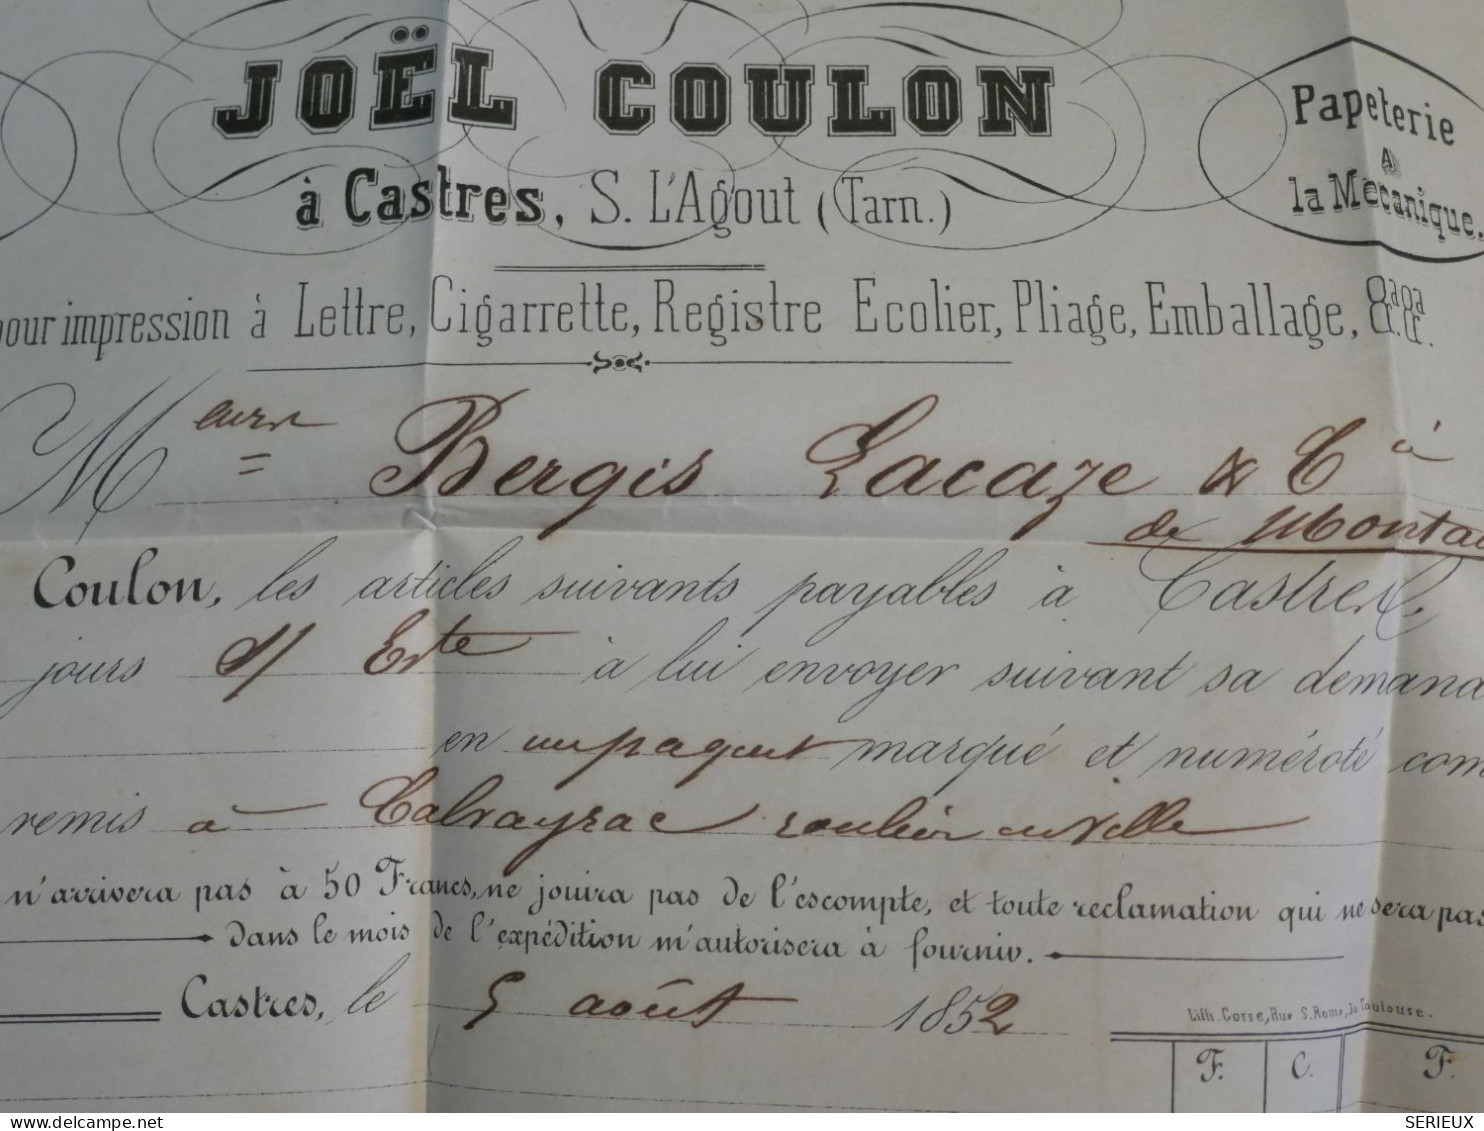 JOËL COULON
à Castres, S. L'Agout (Tarn.)
Papeterie
A
la Mécanique.
pour impression à Lettre, Cigarrette, Registre Ecolier, Pliage, Emballage, &a. &a.
Meurs Bergis Lacaze & Cie à
de Montau
Coulon, les articles suivants payables à Castres
jours d/ Exte à lui envoyer suivant sa demand
en un paquet marqué et numéroté com
remis à Calvayrac roulier en ville
n'arrivera pas à 50 Francs, ne jouira pas de l'escompte, et toute reclamation qui ne sera pas
dans le mois de l'expédition m'autorisera à fournir.
Castres, le 5 août 1852
Lith. Corse, Rue S. Rome, Toulouse.
F. C. F.
SERIEUX